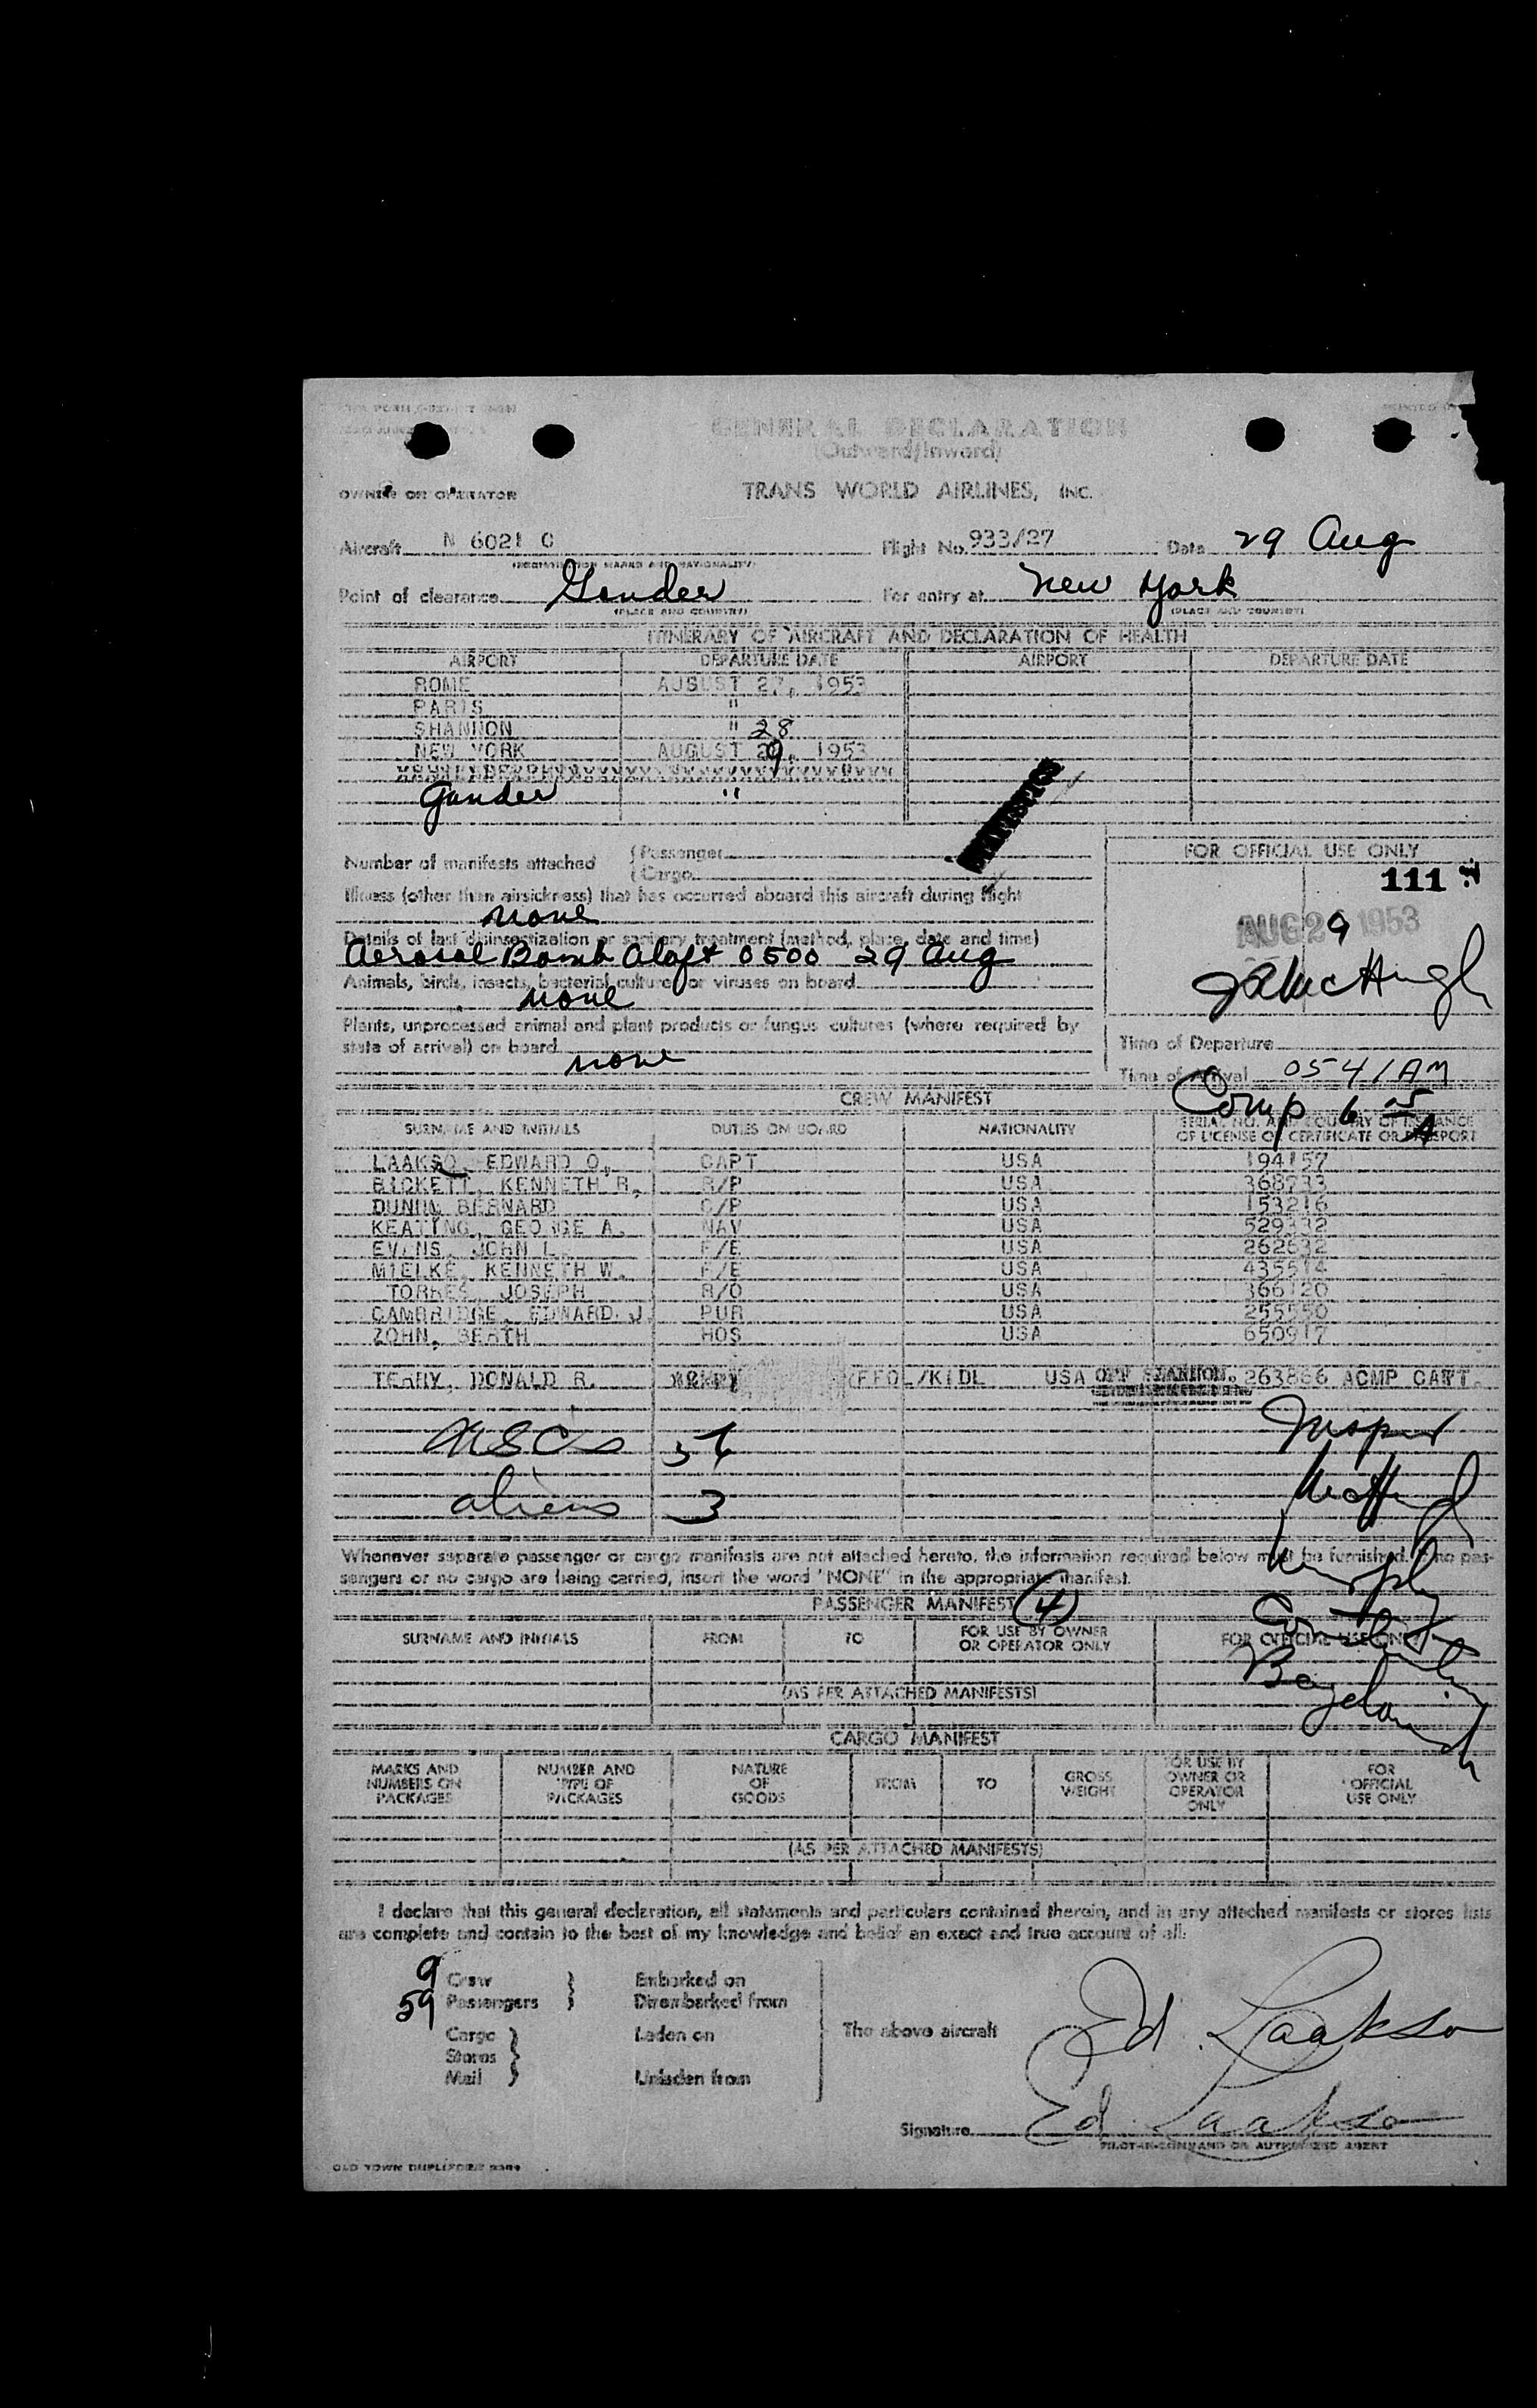 GENERAL DECLARATION
(Outward/Inward)
OWNER OR OPERATOR TRANS WORLD AIRLINES, INC.
Aircraft N 6021 C Flight No. 933/27 Date 29 Aug
(REGISTRATION MARKS AND NATIONALITY)
Point of clearance Gander For entry at New York
(PLACE AND COUNTRY) (PLACE AND COUNTRY)
ITINERARY OF AIRCRAFT AND DECLARATION OF HEALTH
AIRPORT DEPARTURE DATE AIRPORT DEPARTURE DATE
ROME AUGUST 27, 1953
PARIS "
SHANNON " 28
NEW YORK AUGUST 29, 1953
Gander "
STATISTICS
Number of manifests attached { Passenger
{ Cargo
FOR OFFICIAL USE ONLY
111
Illness (other than airsickness) that has occurred aboard this aircraft during flight
none
AUG 29 1953
Details of last disinsectization or sanitary treatment (method, place, date and time)
Aerosol Bomb Aloft 0500 29 Aug
Animals, birds, insects, bacterial cultures or viruses on board
none
Plants, unprocessed animal and plant products or fungus cultures (where required by
state of arrival) on board
none
Time of Departure
Time of Arrival 0541 AM
Comp 6
CREW MANIFEST
SURNAME AND INITIALS DUTIES ON BOARD NATIONALITY SERIAL NO. AND COUNTRY OF ISSUANCE
OF LICENSE OR CERTIFICATE OR PASSPORT
LAAKSO, EDWARD O. CAPT USA 194157
BICKETT, KENNETH R. R/P USA 368733
DUNN, BERNARD C/P USA 153216
KEATING, GEORGE A. NAV USA 529332
EVANS, JOHN L. F/E USA 262632
MIELKE, KENNETH W. F/E USA 435514
TORRES, JOSEPH R/O USA 366120
CAMBRIDGE, EDWARD J. PUR USA 255550
ZOHN, BERTH HOS USA 650917
TERRY, DONALD R. EFOL/KIDL USA OFF SHANNON. 263866 ACMP CAPT.
USC's 56
aliens 3
Murphy
Whenever separate passenger or cargo manifests are not attached hereto, the information required below must be furnished. If no pas-
sengers or no cargo are being carried, insert the word "NONE" in the appropriate manifest.
PASSENGER MANIFEST 4
SURNAME AND INITIALS FROM TO FOR USE BY OWNER
OR OPERATOR ONLY FOR OFFICIAL USE ONLY
(AS PER ATTACHED MANIFESTS)
CARGO MANIFEST
MARKS AND
NUMBERS ON
PACKAGES NUMBER AND
TYPE OF
PACKAGES NATURE
OF
GOODS FROM TO GROSS
WEIGHT FOR USE BY
OWNER OR
OPERATOR
ONLY FOR
OFFICIAL
USE ONLY
(AS PER ATTACHED MANIFESTS)
I declare that this general declaration, all statements and particulars contained therein, and in any attached manifests or stores lists
are complete and contain to the best of my knowledge and belief an exact and true account of all:
9 Crew } Embarked on
59 Passengers } Disembarked from
Cargo } Laden on The above aircraft Ed Laakso
Stores
Mail } Unladen from
Signature Ed Laakso
PILOT-IN-COMMAND OR AUTHORIZED AGENT
OLD TOWN DUPLIFORM